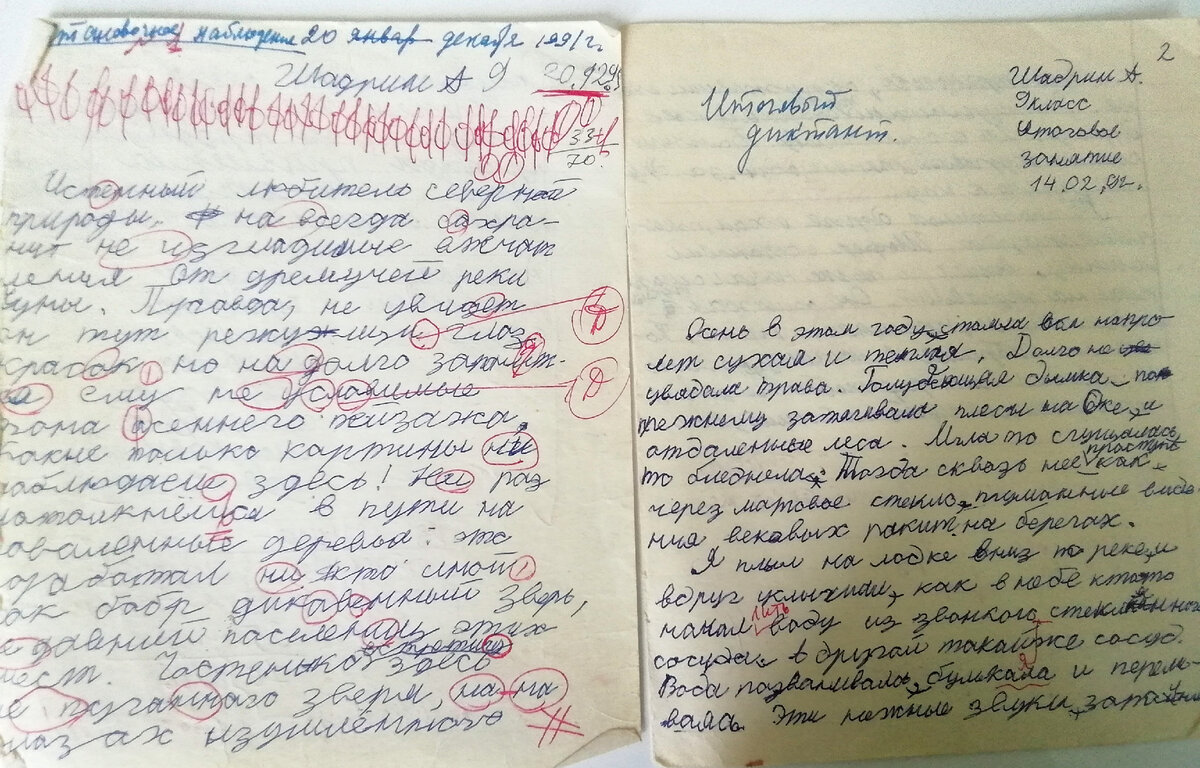 становочное наблюдение 20 январ декабр 1991 г.
Шадрин А 9 20.12.91
334
70
Истенный любитель северной
природы, на всегда сахра-
нит не изгладимые
ления от дремучей реки
уны. Правда, не увидет
он тут режущий глаз
красок но на долго запомнит-
ся ему не уславимые
тона осеннего пизажа
Какие только картины ни
наблюдаеш здесь! Ни раз
натолкнешся в пути на
оваленные деревья: это
оработал ни кто иной
ак бобр диковенный зверь,
едавний поселениц этих
мест. Частенько встретиш здесь
не пуганного зверя, на-на
глазах изумленного
2
Итоговый
диктант.
Шадрин А.
9 класс
итоговое
занятие
14.02.91г.
Осень в этом году стояла вся напро-
лет сухая и теплая. Долго не
увядала трава. Голубеющая дымка по-
прежнему затягивала плесы на Оке, и
отдаленные леса. Мгла то сгущалась,
то бледнела. Тогда сквозь нее проступали как
через матовое стекло, туманные виде
ния вековых ракит на берегах.
Я плыл на лодке вниз по реке, и
вдруг услыхал, как в небе кто-то
начал лить воду из звонкого стеклянного
сосуда, в другой такой же сосуд.
Вода позванивала, булькала и перели-
валась. Эти нежные звуки, запол